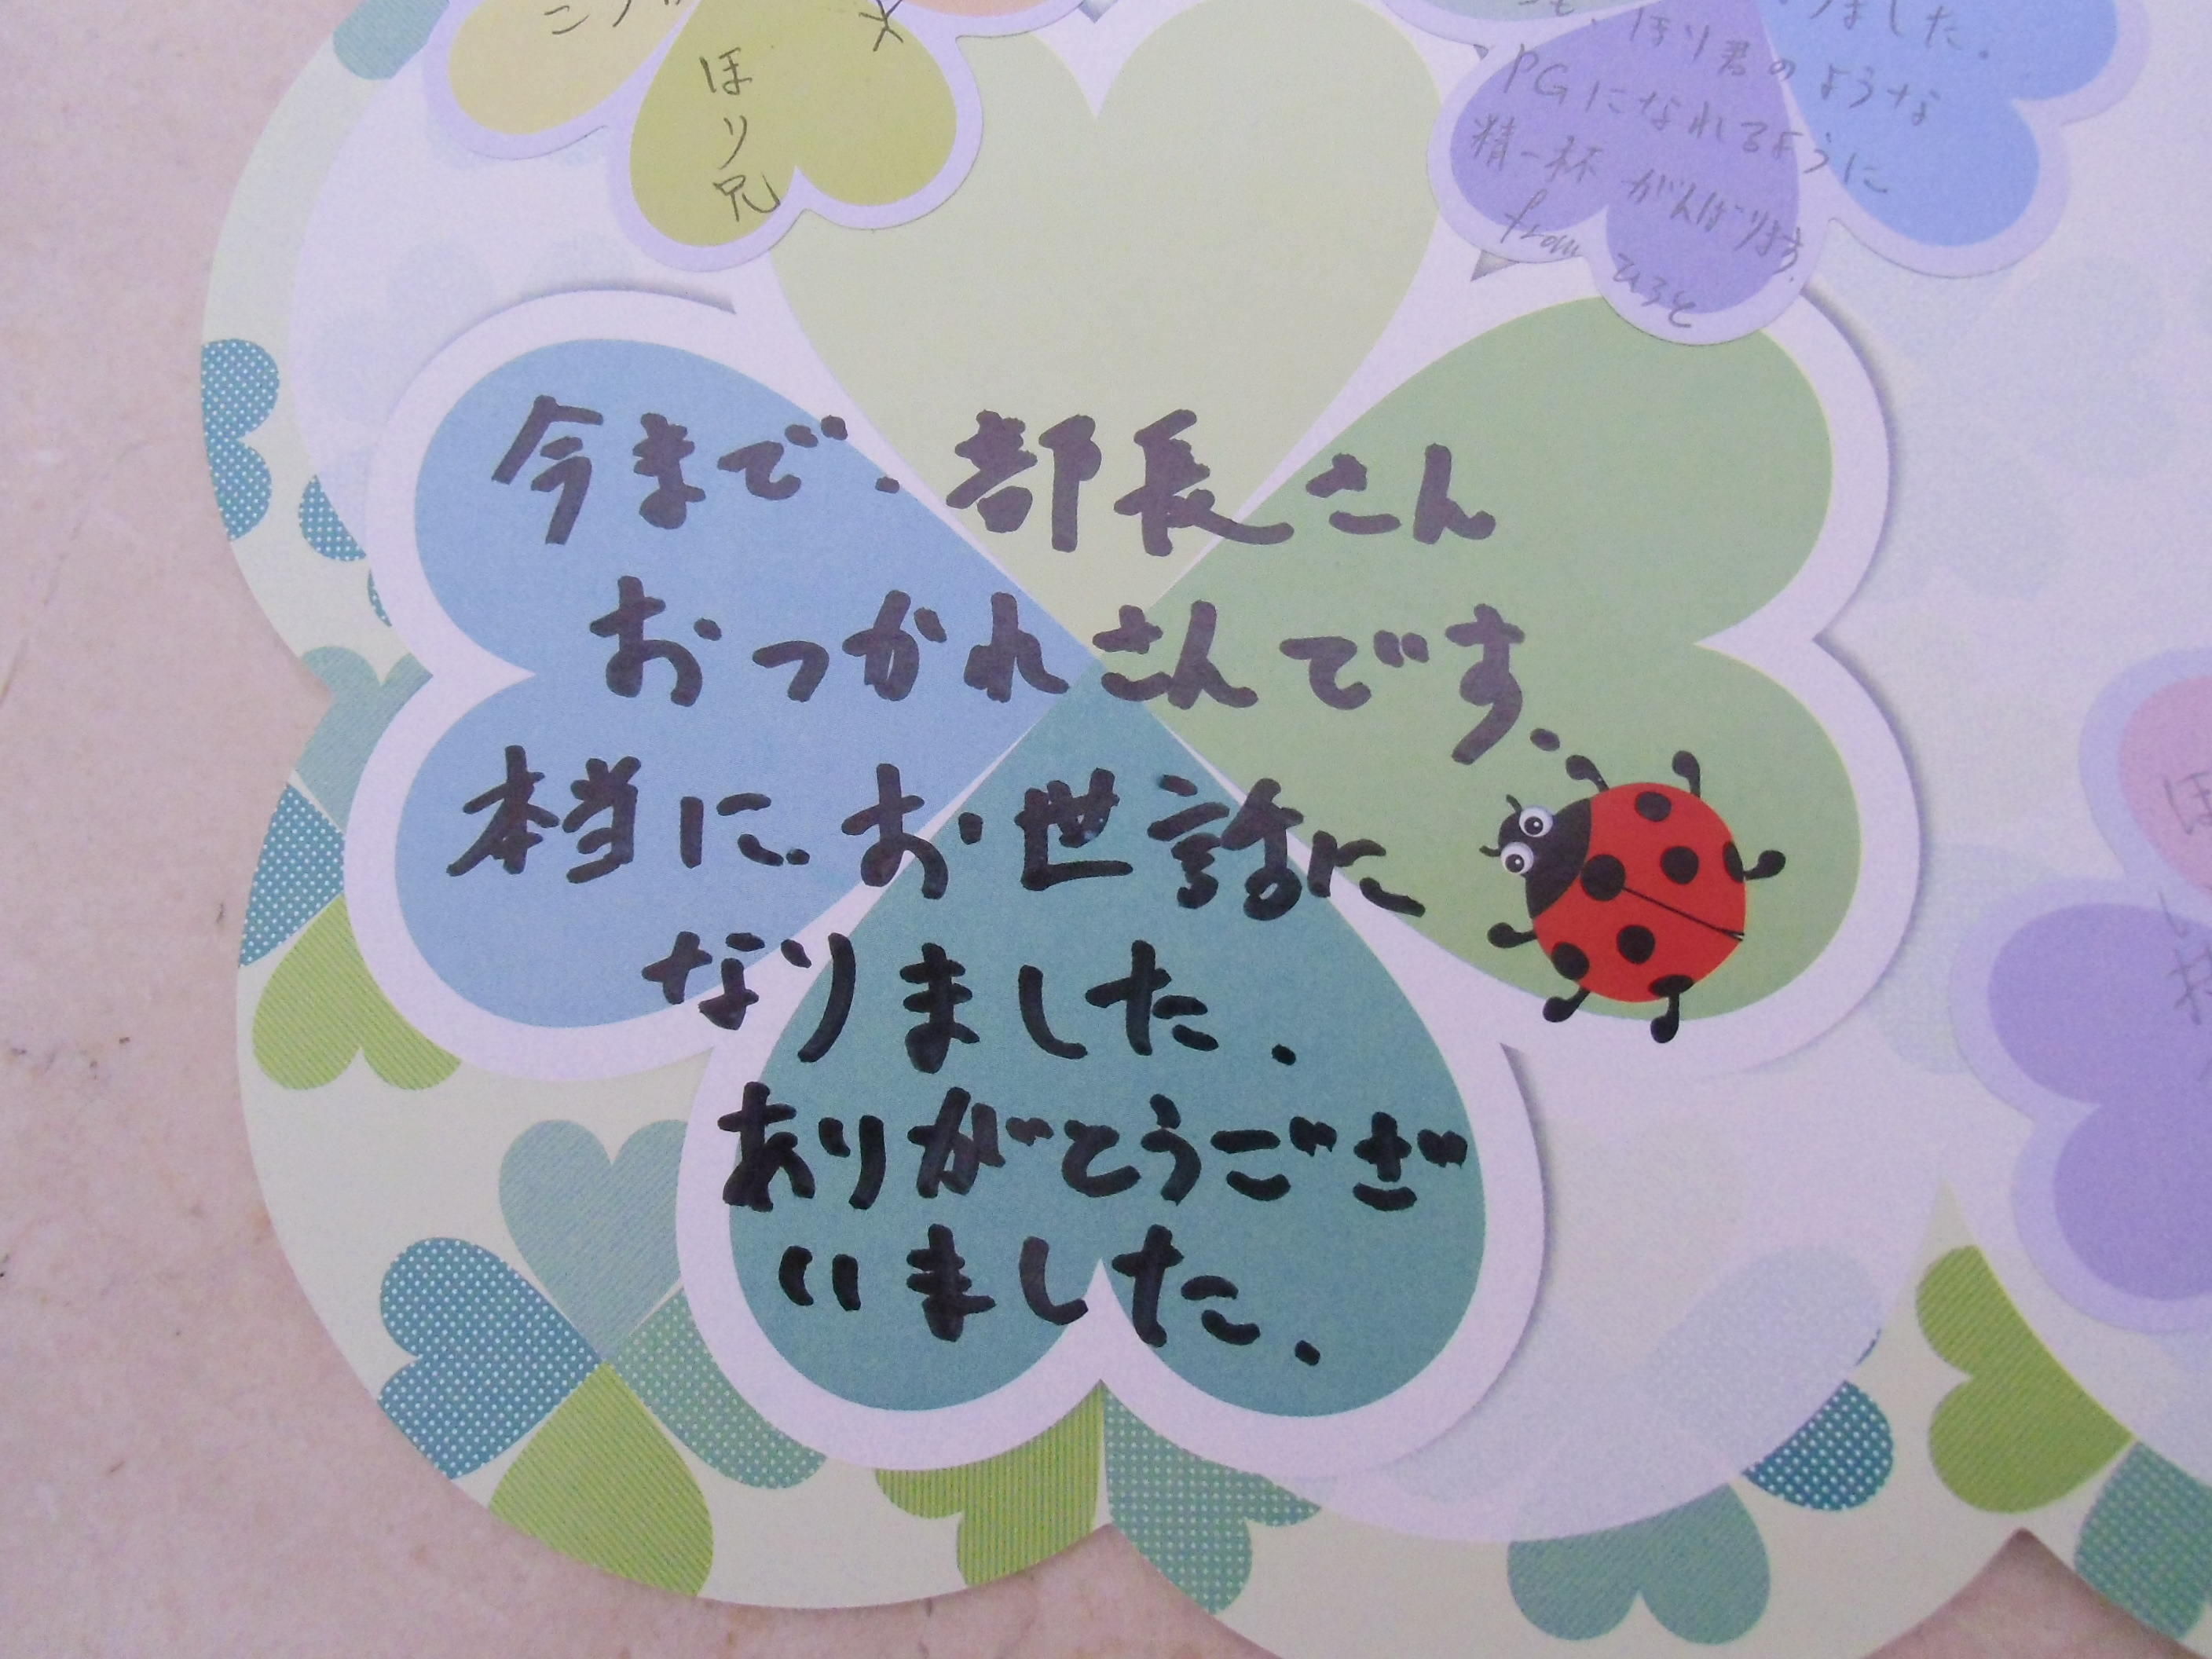 ほり兄
りました.
も、ほり君のような
PGになれるように
精一杯 がんばります.
from ひろと
今まで. 部長さん
おつかれさんです.
本当に. お世話に
なりました.
ありがとうござ
いました.
ほ